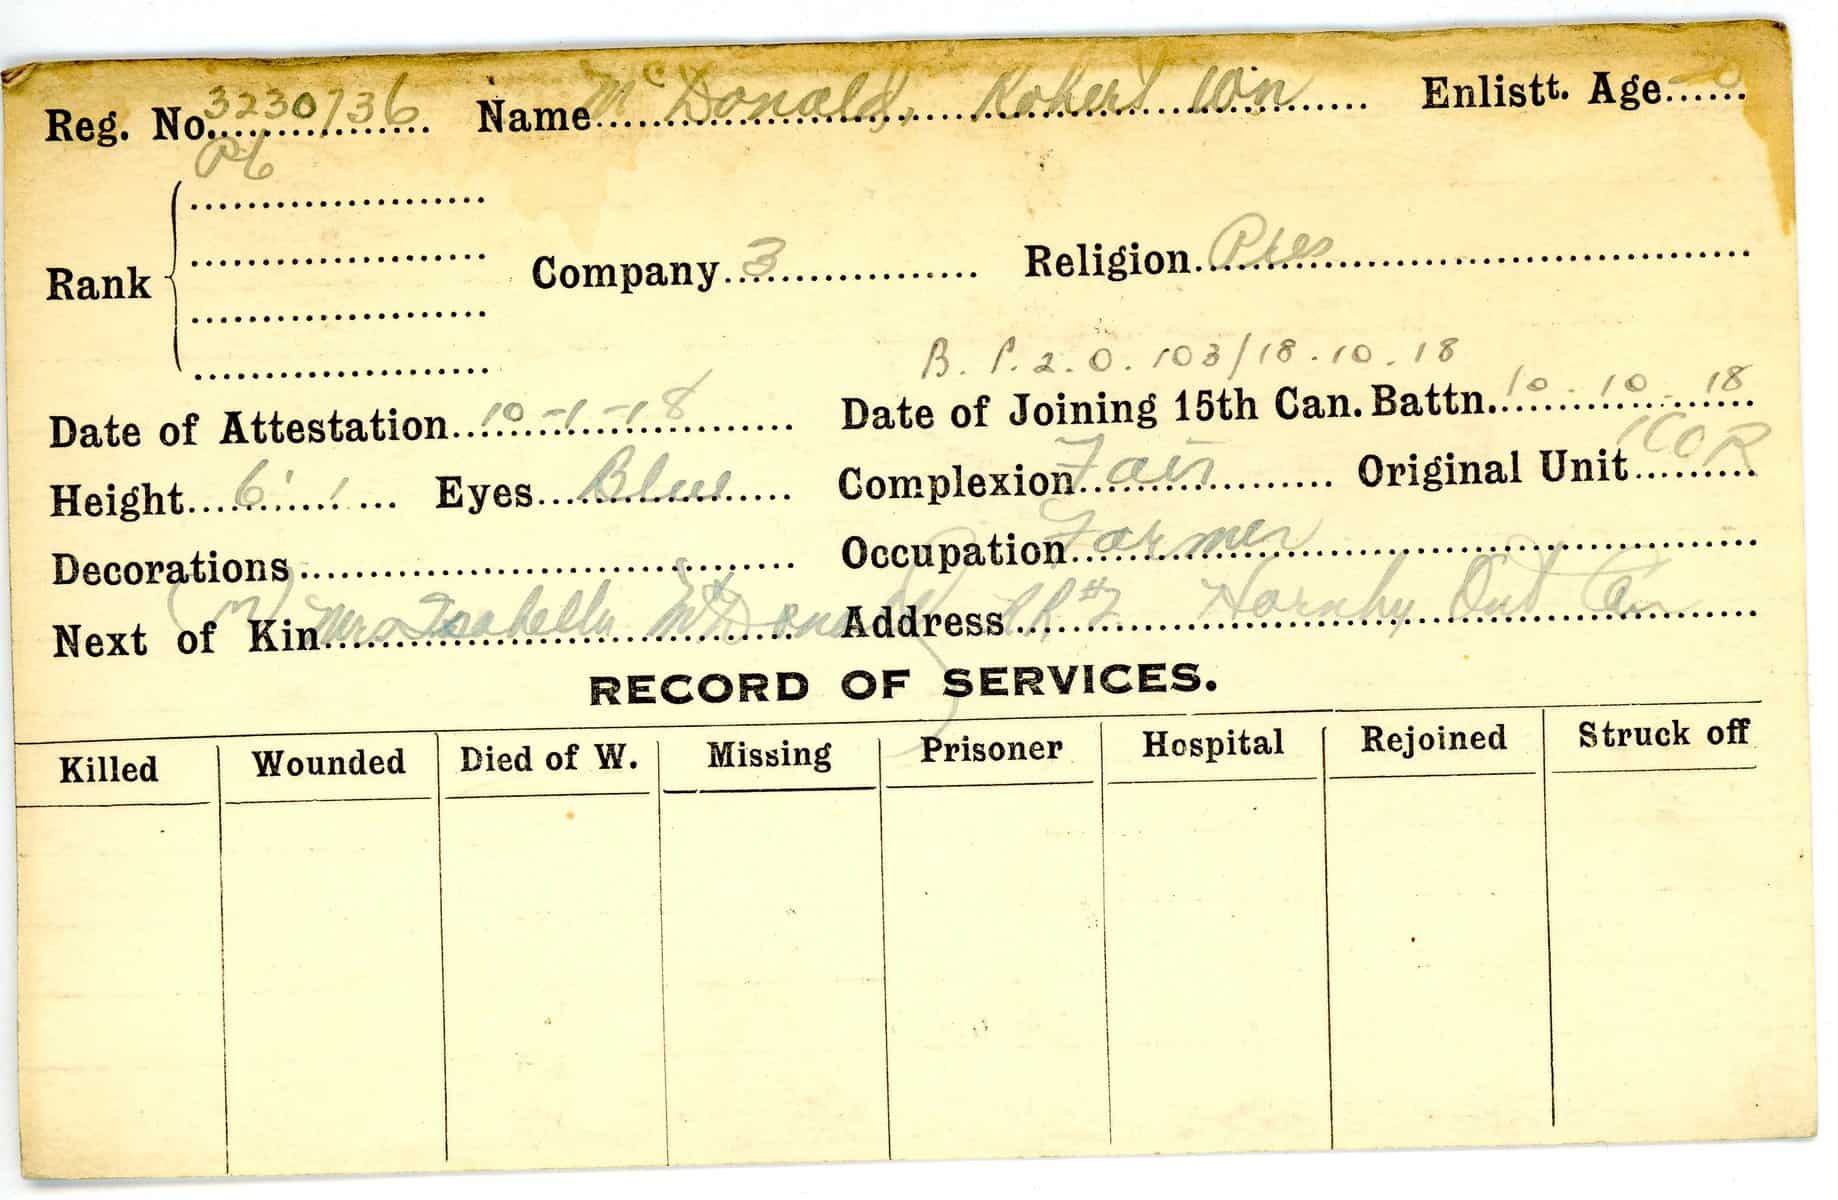 Reg. No. 3230736 Name McDonald, Robert Wm Enlistt. Age 20
Pte
Rank Company 3 Religion Pres
B. P. 2. O. 103/18.10.18
Date of Attestation 10-1-18 Date of Joining 15th Can. Battn. 10-10-18
Height 6' 1 Eyes Blue Complexion Fair Original Unit 1COR
Decorations Occupation Farmer
Next of Kin (m) Mrs Isabella McDonald Address RR#2 Hornby Ont Can
RECORD OF SERVICES.
Killed Wounded Died of W. Missing Prisoner Hospital Rejoined Struck off